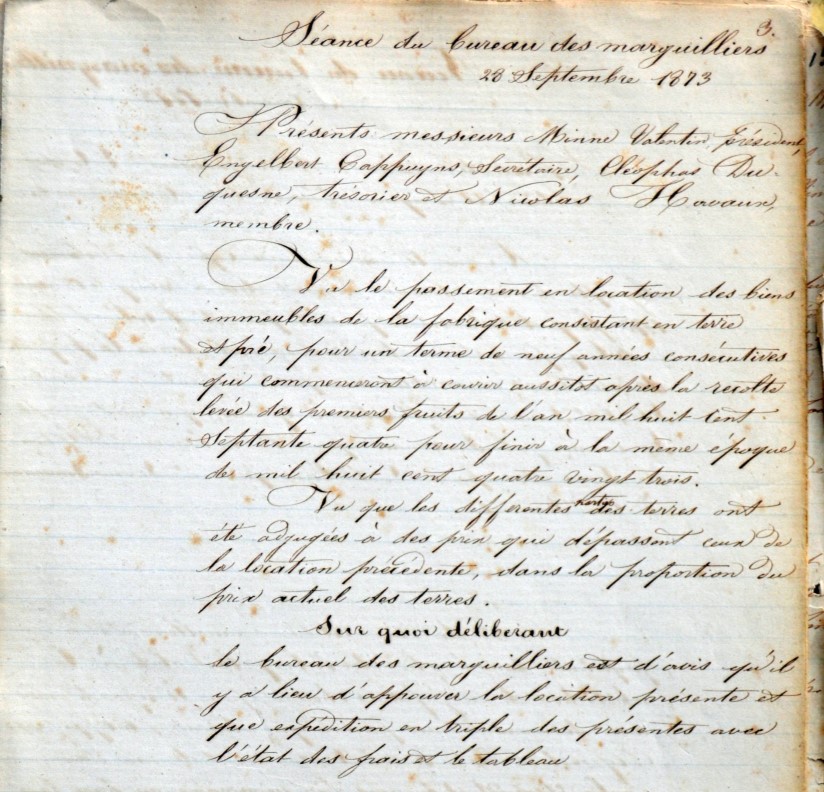 3.
Séance du bureau des marguilliers
28 Septembre 1873
Présents messieurs Minne Valentin, Président,
Engelbert Cappuyns, Secrétaire, Cléophas Du-
quesne, trésorier et Nicolas Hervaux,
membre.
Vu le passement en location des biens
immeubles de la fabrique consistant en terre
et pré, pour un terme de neuf années consécutives
qui commenceront à courir aussitôt après la recolte
levée des premiers fruits de l'an mil huit cent
septante quatre pour finir à la même epoque
de mil huit cent quatre vingt trois.
Vu que les differentes des terres ont
été adjugées à des prix qui dépassent ceux de
la location précédente, dans la proportion du
prix actuel des terres.
Sur quoi déliberant
le bureau des marguilliers est d'avis qu'il
y a lieu d'appouver la location présente et
que expedition en triple des présentes avec
l'état des frais et le tableau